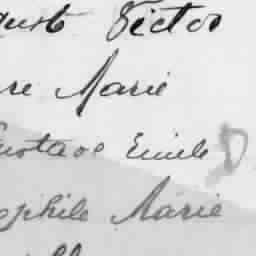 gust Victor
re Marie
ustave Emile
ophile Marie